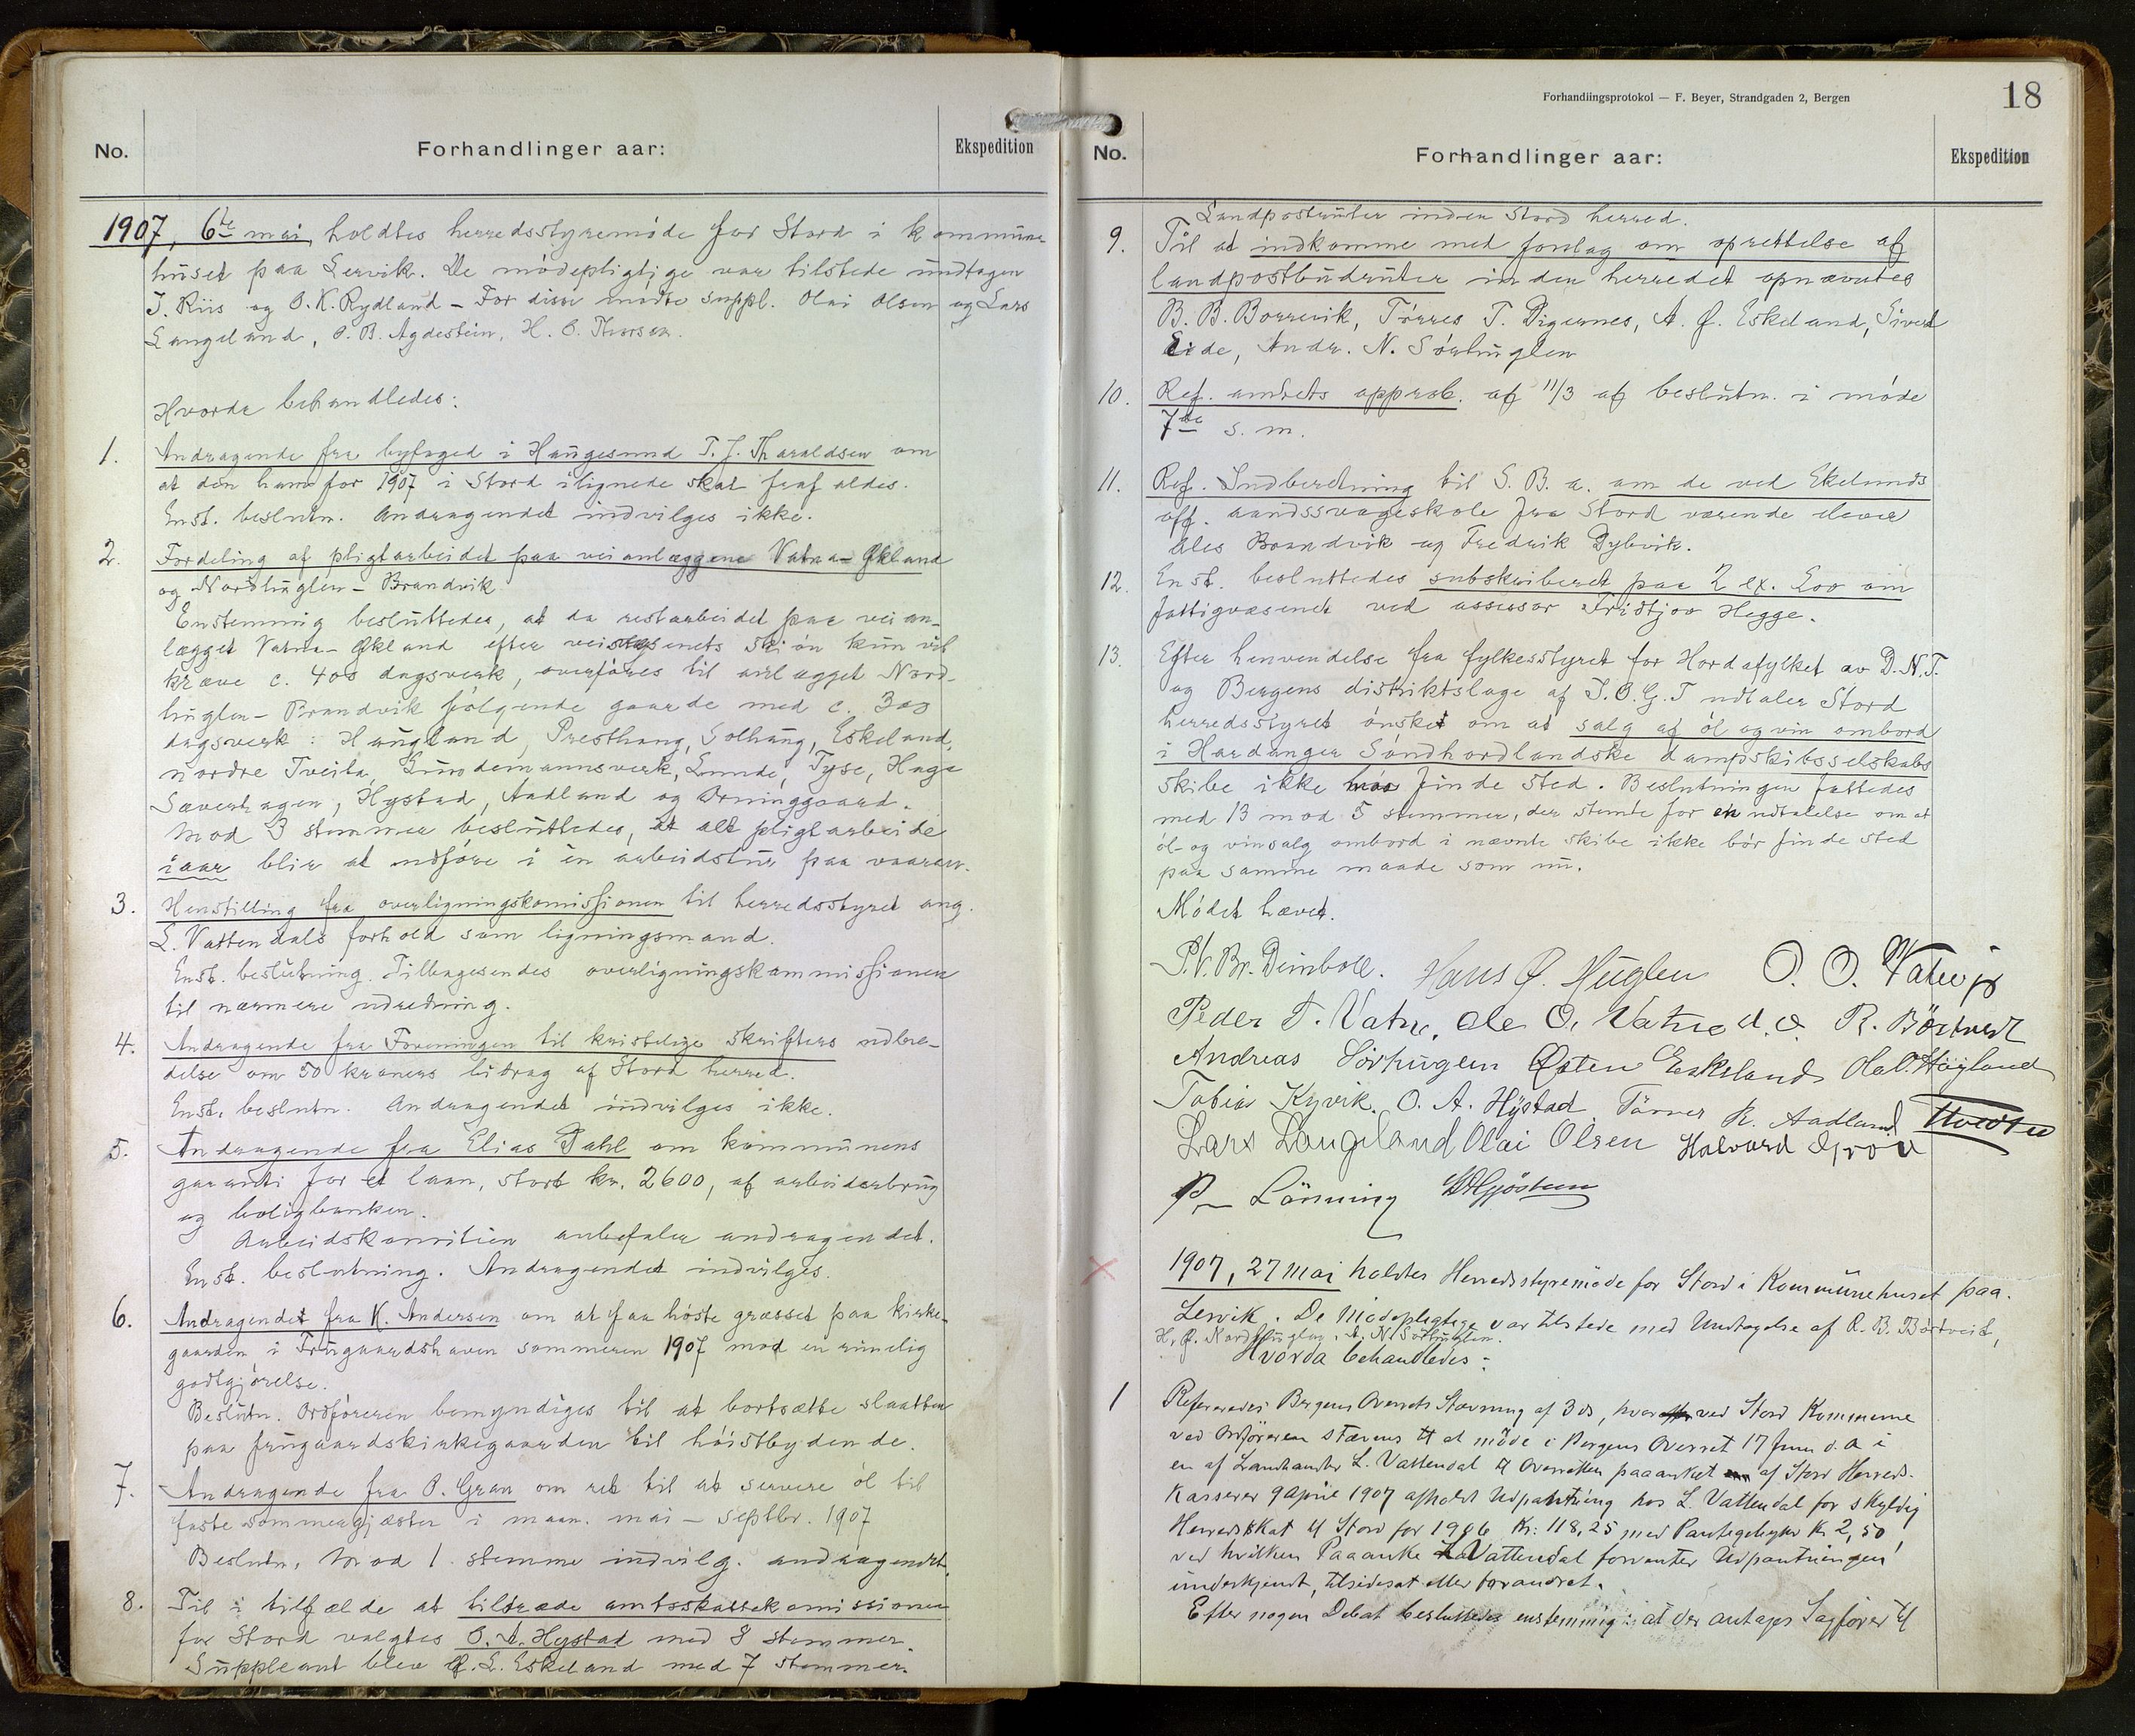 No.
Forhandlinger aar:
Ekspedition
1907, 6te mai, holdtes herredsstyremøde for Stord i kommune
huset paa Lervik. De mødepligtige var tilstede undtagen
J. Riis og O. K. Rydland – For disse mødte suppl. Olai Olsen og Lars
Langeland, O. B. Agdestein, H. O. Thorsen.
Hvorda behandledes:
1. Andragende fra byfoged i Haugesund T. J. Tharaldsen om
at den ham for 1907 i Stord ilignede skat frafaldes.
Enst. beslutn. Andragendet indvilges ikke.
2. Fordeling af pligtarbeidet paa veianlæggene Vatna-Økland
og Nordhuglen – Brandvik
Enstemmig besluttedes, at da restarbeidet paa veian-
lægget Vatna-Økland efter veivæsenets skjøn kun vil
kræve c. 400 dagsverk, overføres til anlægget Nord-
huglen – Brandvik følgende gaarde med c. 300
dagsverk: Haugland, Presthaug, Solhaug, Eskeland,
nordre Tveita, Gundemannsverk, Lunde, Tyse, Hage
Sæverhagen, Hystad, Aadland og Ørninggaard.
Mod 3 stemmer besluttedes, at alt pligtarbeide
iaar blir at udføre i èn arbeidstur paa vaaren.
3. Henstilling fra overligningskomissionen til herredsstyret ang.
L. Vattendals forhold som ligningsmand.
Enst. beslutning. Tilbagesendes overligningskommissionen
til nærmere udredning.
4. Andragende fra Foreningen til kristelige skrifters udbre-
delse om 50 kroners bidrag af Stord herred.
Enst. beslutn. Andragendet indvilges ikke.
5. Andragende fra Elias Dahl om kommunens
garanti for et laan, stort kr. 2600, af arbeiderbrug
og boligbanken.
Arbeidskomitéen anbefaler andragendet.
Enst. beslutning. Andragendet indvilges.
6. Andragendet fra K. Andersen om at faa høste græsset paa kirke-
gaarden i Frugaardshaven sommeren 1907 mod en rimelig
godtgjørelse.
Beslutn. Ordføreren bemyndiges til at bortsætte slaatten
paa frugaardskirkegaarden til høistbydende.
7. Andragende fra O. Gran om ret til at servere øl til
faste sommergjæster i maan. mai – septbr. 1907
Beslutn. Mod 1 stemme indvilg. andragendet.
8. Til i tilfælde at tiltræde amtsskattekomissionen
for Stord valgtes O. A. Hystad med 8 stemmer.
Suppleant blev Ø. L. Eskeland med 7 stemmer.
Forhandlingsprotokol — F. Beyer, Strandgaden 2, Bergen
18
No.
Forhandlinger aar:
Ekspedition
Landpostruter inden Stord herred.
9. Til at indkomme med forslag om oprettelse af
landpostbudruter inden herredet opnævntes
B. B. Borrevik, Tørres T. Digernes, A. Ø. Eskeland, Sivert
Eide, Andr. N. Sørhuglen
10. Ref. amtets approb. af 11/3 af beslutn. i møde
7de s. m.
11. Ref. Indberetning til S. B. a. om de ved Ekelunds
off. aandssvageskole fra Stord værende elever
Ales Brandvik og Fredrik Dybvik.
12. Enst. besluttedes subskriberet paa 2 ex. Lov om
fattigvæsenet ved assessor Fridtjov Hegge.
13. Efter henvendelse fra fylkesstyret for Hordafylket av D.N.T.
og Bergens distriktsloge af I.O.G.T udtaler Stord
herredsstyret ønsket om at salg af øl og vin ombord
i Hardanger Søndhordlandske dampskibsselskabs
skibe ikke maa finde sted. Beslutningen fattedes
med 13 mod 5 stemmer, der stemte for en udtalelse om at
øl- og vinsalg ombord i nævnte skibe ikke bør finde sted
paa samme maade som nu.
Mødet hævet.
P.V. Br. Deinboll. Hans Ø. Huglen O. O. Vatne jr
Peder T. Vatne, Ole O. Vatne d. e. R. Børtveit
Andreas Sørhuglen Østen Eskeland Hal. Høyland
Tobias Kyvik. O. A. Hystad Tørres K. Aadland
Lars Langeland Olai Olsen Halvard Grov
P. Lønning
1907, 27 Mai holdtes Herredsstyremøde for Stord i Kommunehuset paa.
Lervik. De Mødepligtige var tilstede med Undtagelse af R. B. Børtveit,
H. Ø. Nordhuglen, A. N. Sørhuglen.
Hvorda behandledes:
1 Refereredes Bergens Overrets Stævning af 3 ds, hvorved Stord Kommune
ved Ordføreren stævnes til at møde i Bergens Overret 17 Juni d. a i
en af Landhandler L. Vattendal til Overretten paaanket af Stord Herreds-
Kasserer 9 April 1907 afholdt Udpantning hos L. Vattendal for skyldig
Herredsskat til Stord for 1906 Kr: 118,25 med Pantegebyhr Kr 2,50
ved hvilken Paaanke L. Vattendal forventer Udpantningen
underkjendt, tilsidesat eller forandret.
Efter nogen Debat besluttedes enstemmig: at der antages Sagfører til